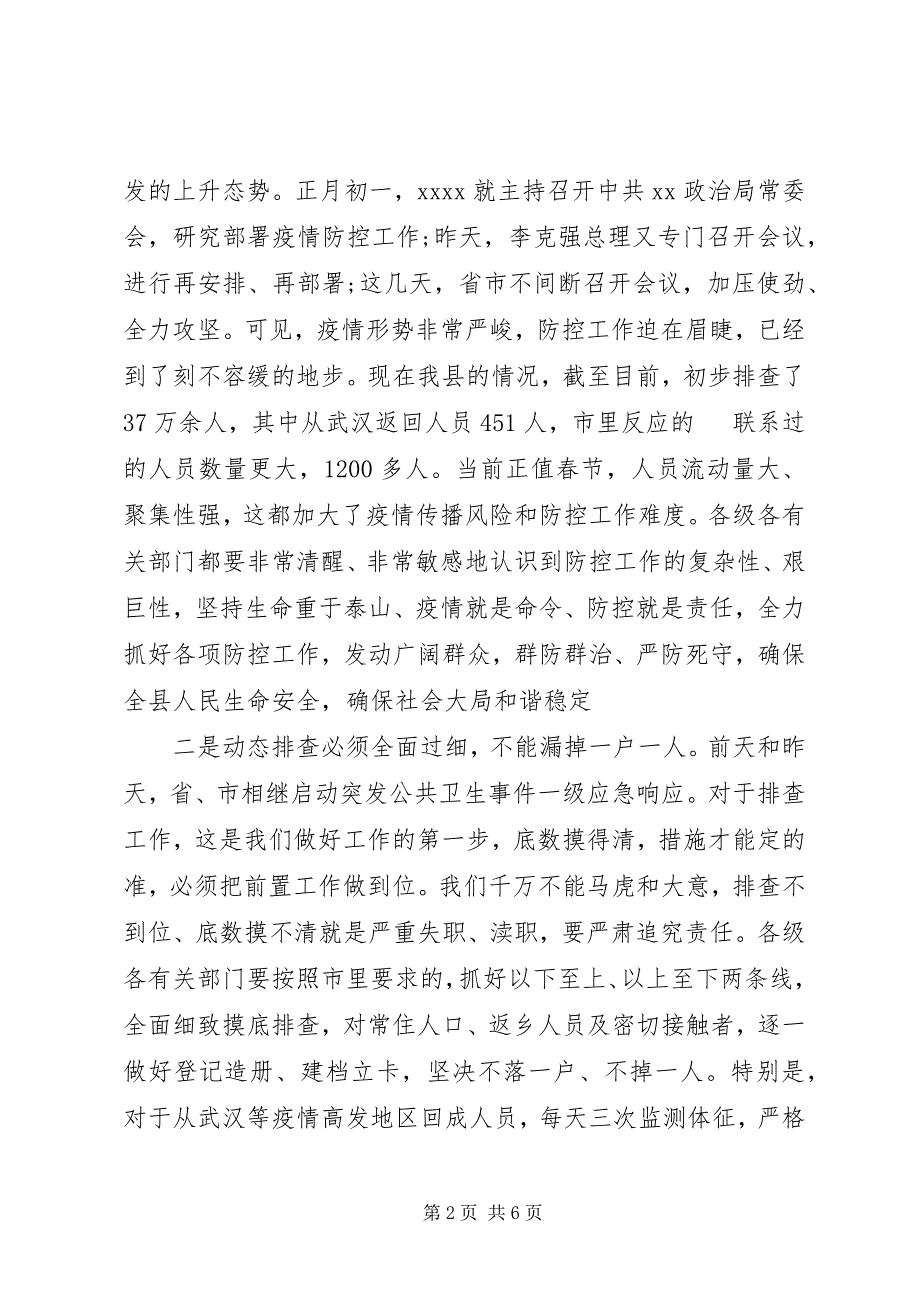 发的上升态势。正月初一，xxxx 就主持召开中共 xx 政治局常委
会，研究部署疫情防控工作;昨天，李克强总理又专门召开会议，
进行再安排、再部署;这几天，省市不间断召开会议，加压使劲、
全力攻坚。可见，疫情形势非常严峻，防控工作迫在眉睫，已经
到了刻不容缓的地步。现在我县的情况，截至目前，初步排查了
37 万余人，其中从武汉返回人员 451 人，市里反应的   联系过
的人员数量更大，1200 多人。当前正值春节，人员流动量大、
聚集性强，这都加大了疫情传播风险和防控工作难度。各级各有
关部门都要非常清醒、非常敏感地认识到防控工作的复杂性、艰
巨性，坚持生命重于泰山、疫情就是命令、防控就是责任，全力
抓好各项防控工作，发动广阔群众，群防群治、严防死守，确保
全县人民生命安全，确保社会大局和谐稳定
二是动态排查必须全面过细，不能漏掉一户一人。前天和昨
天，省、市相继启动突发公共卫生事件一级应急响应。对于排查
工作，这是我们做好工作的第一步，底数摸得清，措施才能定的
准，必须把前置工作做到位。我们千万不能马虎和大意，排查不
到位、底数摸不清就是严重失职、渎职，要严肃追究责任。各级
各有关部门要按照市里要求的，抓好以下至上、以上至下两条线，
全面细致摸底排查，对常住人口、返乡人员及密切接触者，逐一
做好登记造册、建档立卡，坚决不落一户、不掉一人。特别是，
对于从武汉等疫情高发地区回成人员，每天三次监测体征，严格
第 2 页 共 6 页